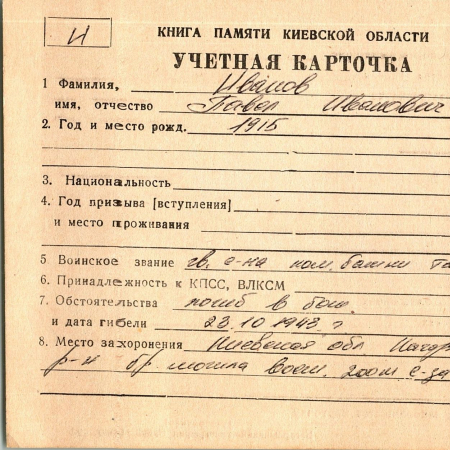 И
КНИГА ПАМЯТИ КИЕВСКОЙ ОБЛАСТИ
УЧЕТНАЯ КАРТОЧКА
1 Фамилия, Иванов
имя, отчество Павел Иванович
2. Год и место рожд. 1915
3. Национальность
4. Год призыва [вступления]
и место проживания
5 Воинское звание гв. с-на ком. башни та
6. Принадлежность к КПСС, ВЛКСМ
7. Обстоятельства погиб в бою
и дата гибели 23.10.1943 г
8. Место захоронения Киевская обл Кагар
р-н бр. могила вост. 200м с-за